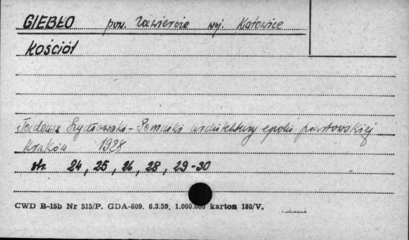 GIEBŁO pow. Zawiercie woj. Katowice
KOŚCIÓŁ
Tadeusz Szydłowski - Pomniki architektury epoki piastowskiej
Kraków 1928
str. 24, 25, 26, 28, 29-30
CWD B-15b Nr 515/P. GDA-809. 6.3.59. 1.000.000 karton 180/V.